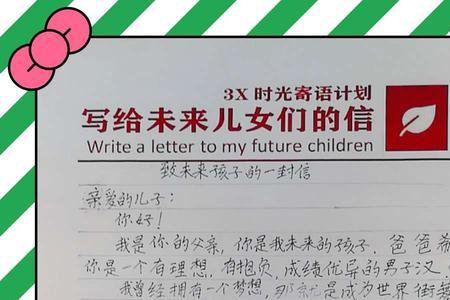 3X 时光寄语计划
写给未来儿女们的信
Write a letter to my future children
致未来孩子的一封信
亲爱的儿子：
你好！
我是你的父亲，你是我未来的孩子．爸爸希
你是一个有理想，有抱负，成绩优异的男子汉．
我曾经拥有一个梦想，那就是成为世界街舞